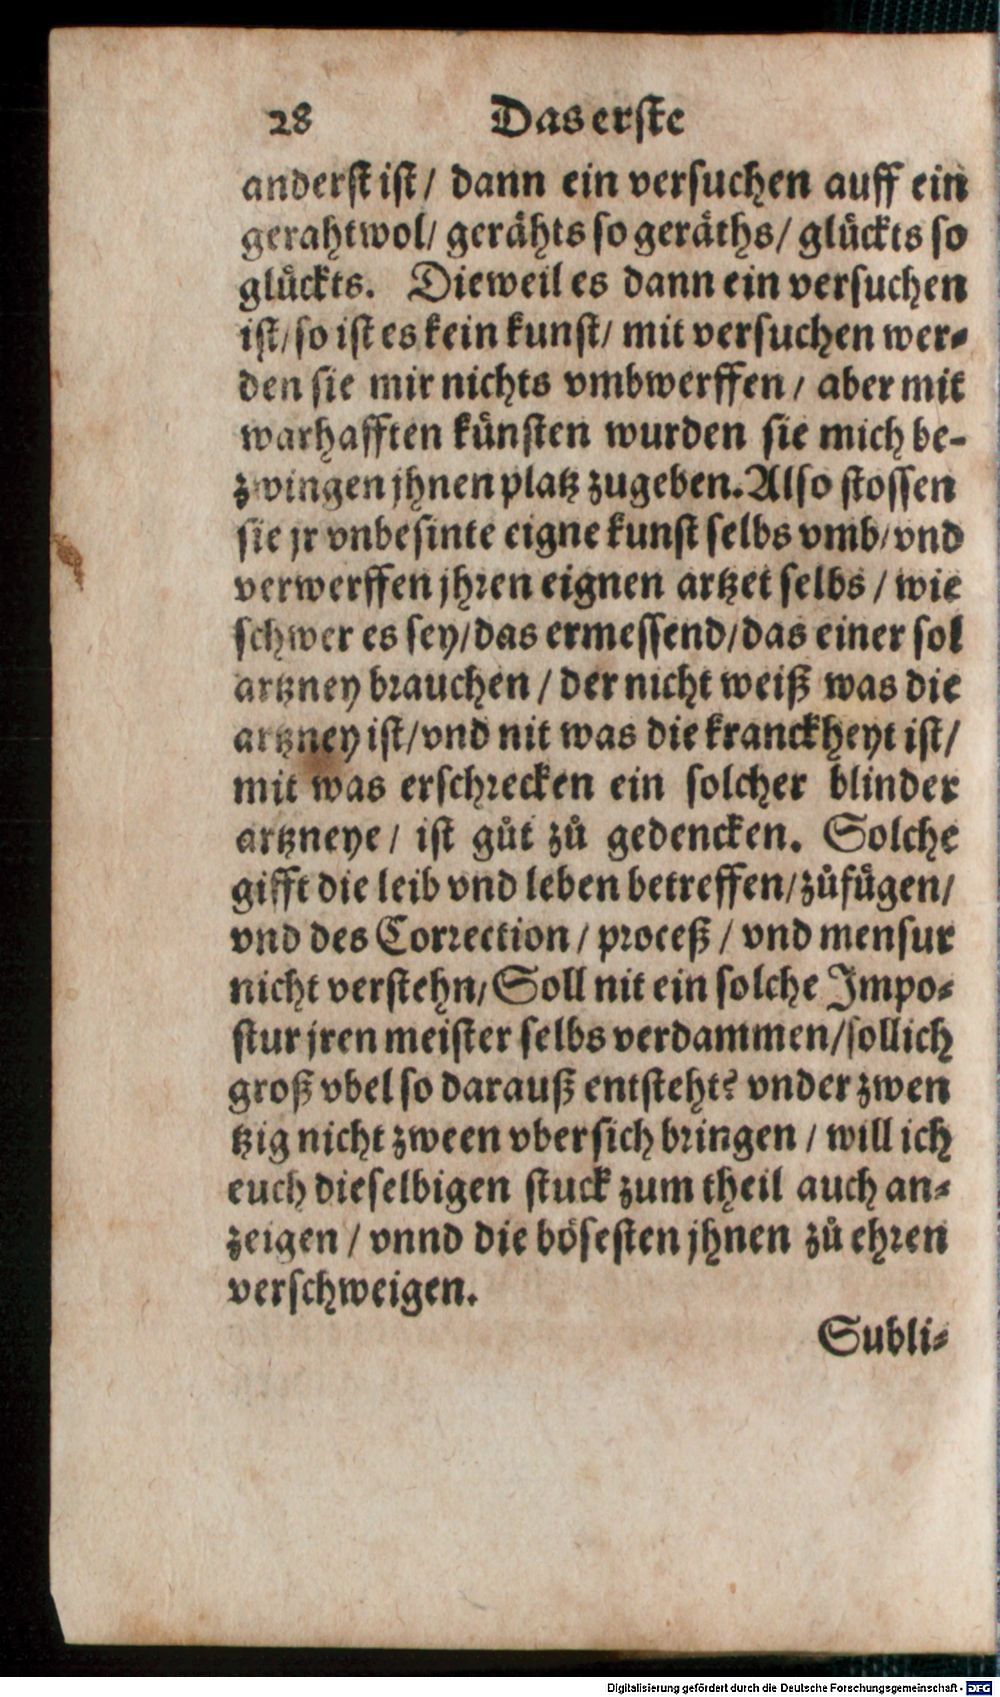 28 Das erste
anderst ist / dann ein versuchen auff ein
gerahtwol / gerähts so geräths / glückts so
glückts. Dieweil es dann ein versuchen
ist / so ist es kein kunst / mit versuchen wer-
den sie mir nichts vmbwerffen / aber mit
warhafften künsten wurden sie mich be-
zwingen jhnen platz zugeben. Also stossen
sie jr vnbesinte eigne kunst selbs vmb / vnd
verwerffen jhren eignen artzet selbs / wie
schwer es sey / das ermessend / das einer sol
artzney brauchen / der nicht weiß was die
artzney ist / vnd nit was die kranckheyt ist /
mit was erschrecken ein solcher blinder
artzneye / ist gůt zů gedencken. Solche
gifft die leib vnd leben betreffen / zůfügen /
vnd des Correction / proceß / vnd mensur
nicht verstehn / Soll nit ein solche Impo-
stur jren meister selbs verdammen / sollich
groß vbel so darauß entsteht? vnder zwen
tzig nicht zween vbersich bringen / will ich
euch dieselbigen stuck zum theil auch an-
zeigen / vnnd die bösesten jhnen zů ehren
verschweigen.
Subli-
Digitalisierung gefördert durch die Deutsche Forschungsgemeinschaft - DFG